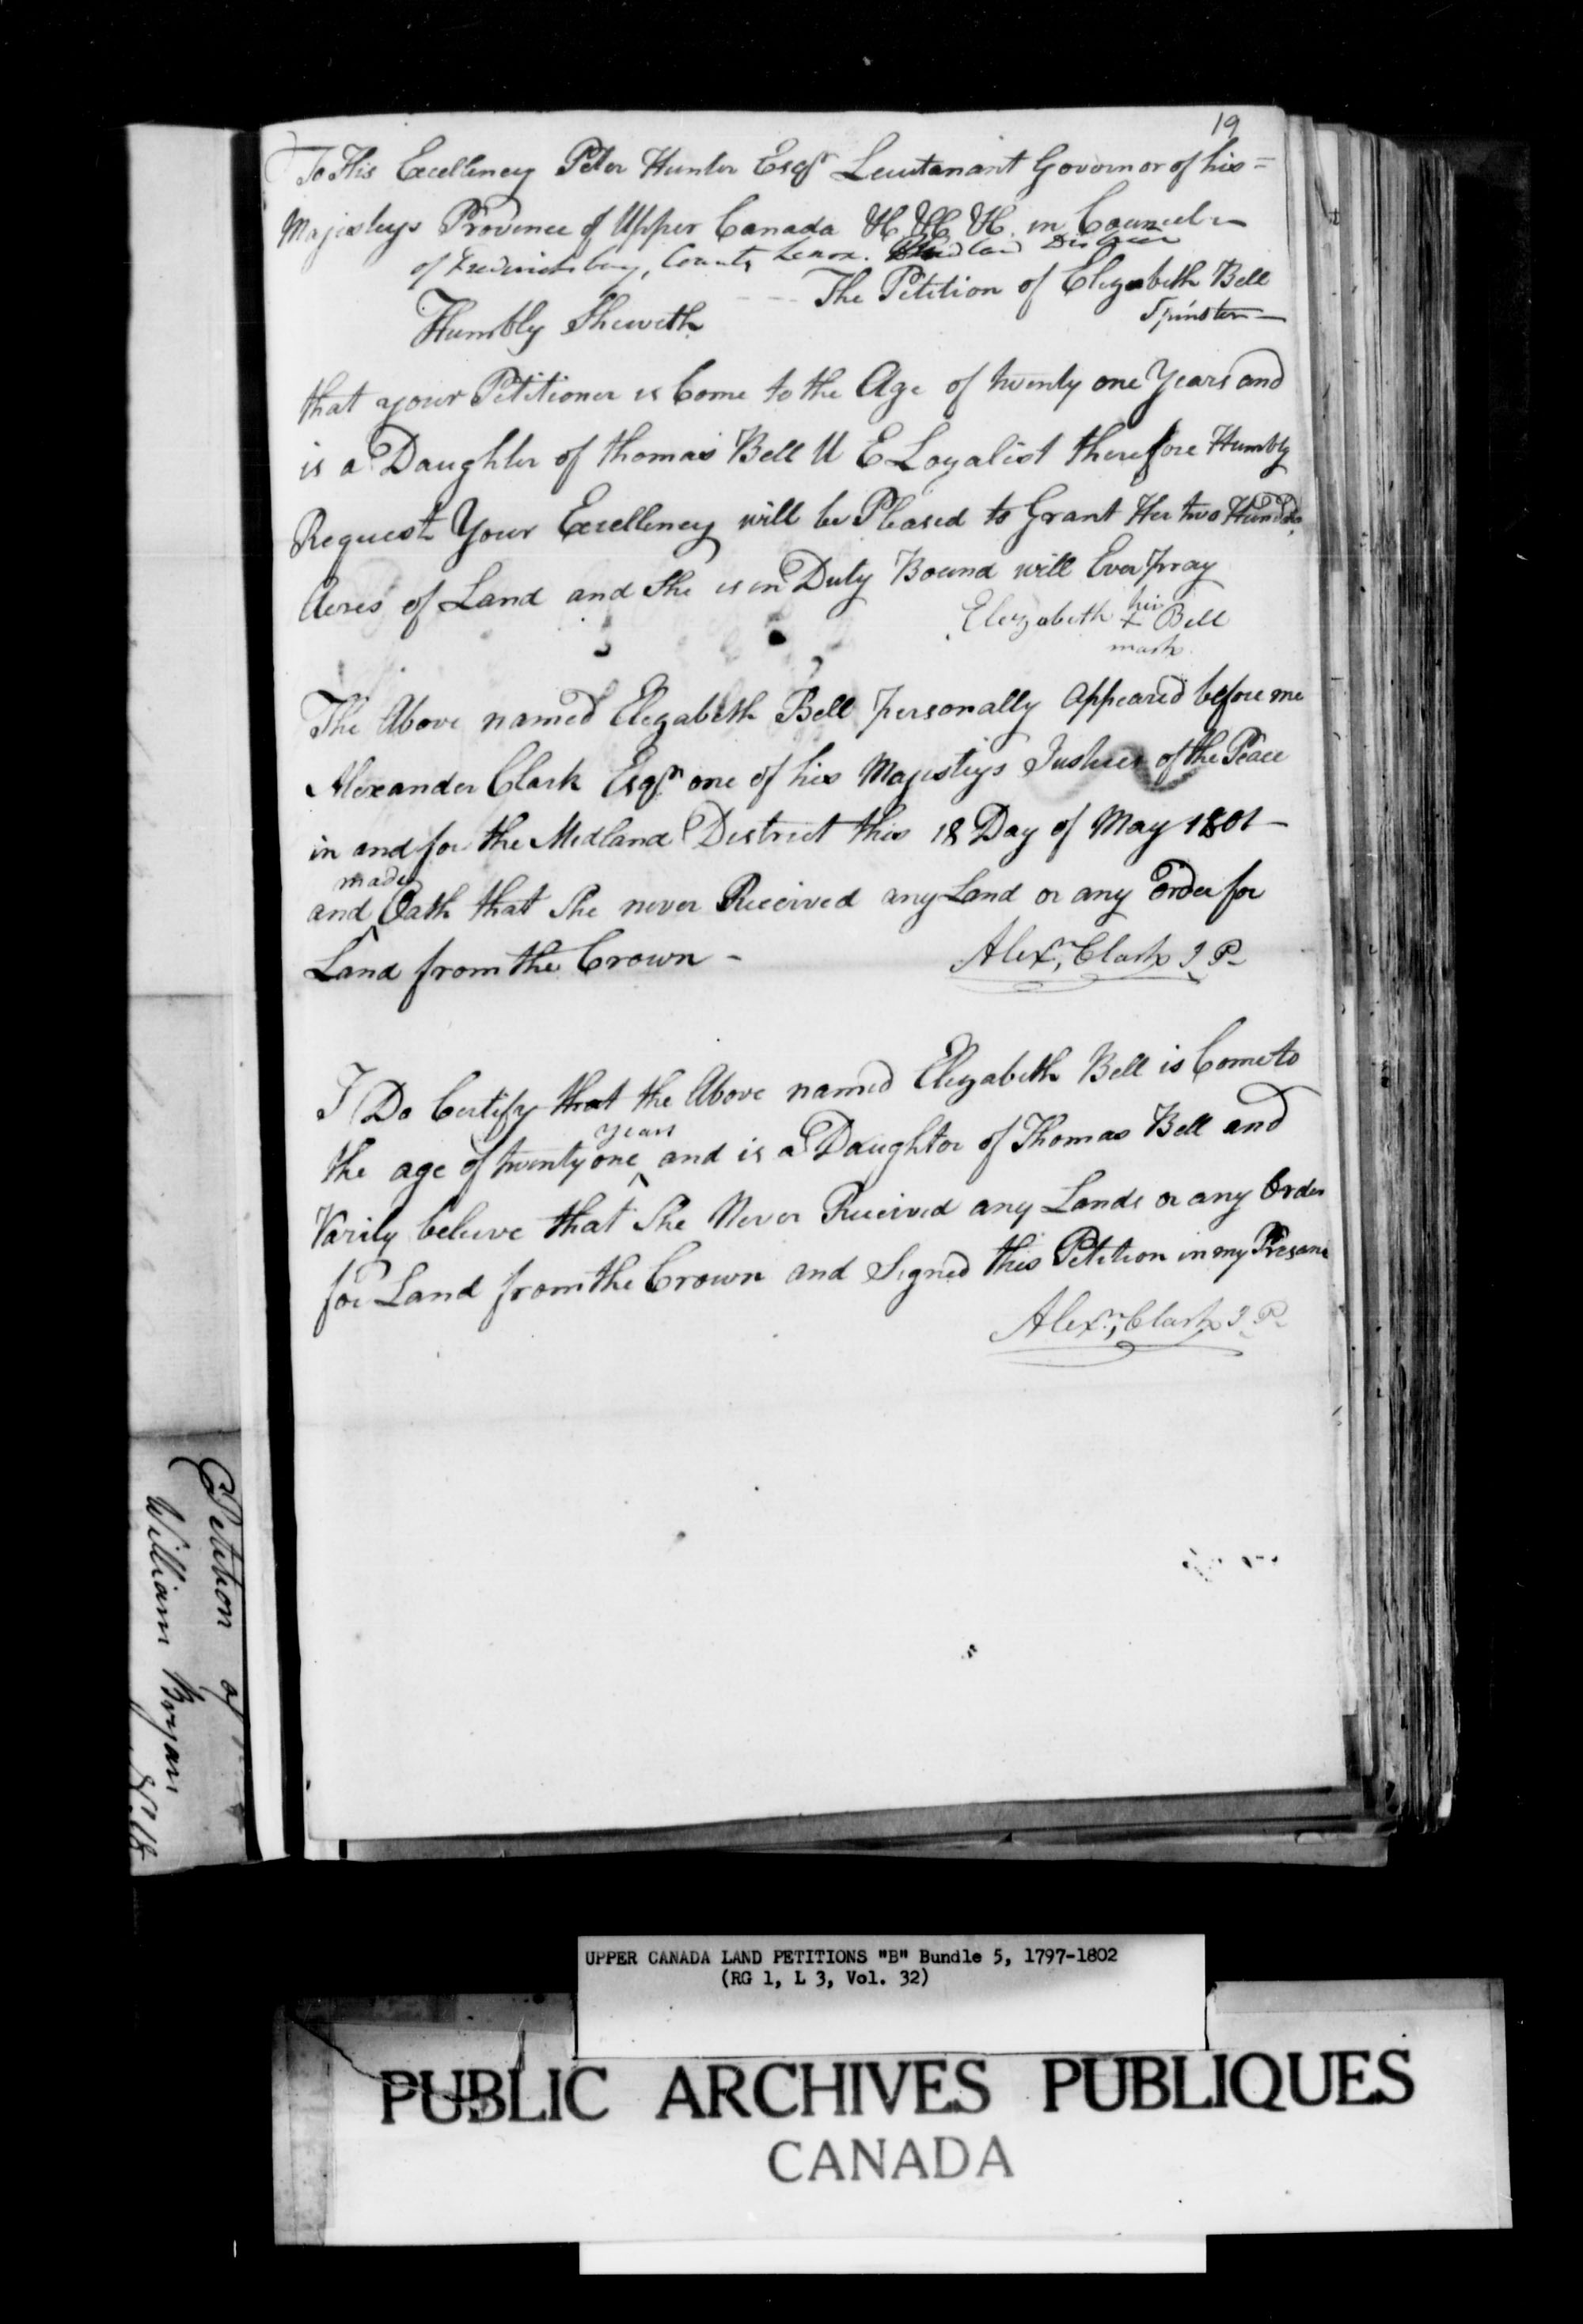 19
To His Excellency Peter Hunter Esqr Leutanant Governor of his =
Majestys Province of Upper Canada &c &c &c. in Council —
of Fredericksburg, County Lenox. Midland District
The Petition of Elizabeth Bell
Spinster —
Humbly Sheweth
that your Petitioner is Come to the Age of twenty one Years and
is a Daughter of thomas Bell U E Loyalist therefore Humbly
Request Your Excellency will be Pleased to Grant Her two
Acres of Land and She is in Duty Bound will Ever Pray
Elizabeth her x Bell
mark
The Above named Elizabeth Bell personally Appeared before me
Alexander Clark Esqr one of his Majestys Justices of the Peace
in and for the Midland District this 18 Day of May 1801 —
made
and ^ Oath that She never Received any Land or any Order for
Land from the Crown -
Alexr, Clark J P
I Do Certify that the Above named Elizabeth Bell is Come to
years
the age of twenty one ^ and is a Daughter of Thomas Bell and
Varily beleive that She Never Received any Lands or any Order
for Land from the Crown and Signed this Petition in my
Alexr, Clark J P
Petition of
William Bryan
UPPER CANADA LAND PETITIONS "B" Bundle 5, 1797-1802
(RG 1, L 3, Vol. 32)
PUBLIC ARCHIVES PUBLIQUES
CANADA